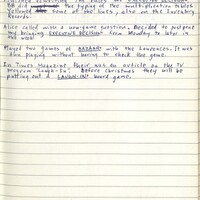 BB did the typing of the multiplication tables
Yellowed some of the lines, also on the Inventory
Records.
Alice called with a new-game question. Decided to postpone
my bringing EXECUTIVE DECISION from Monday to later in
the week.
Played two games of with the Landlords. It was
nice playing without having to check the game.
In Times Magazine there was an article on the TV
program "Laugh-In". Before Christmas they will be
putting out a LAUGH-IN board game.